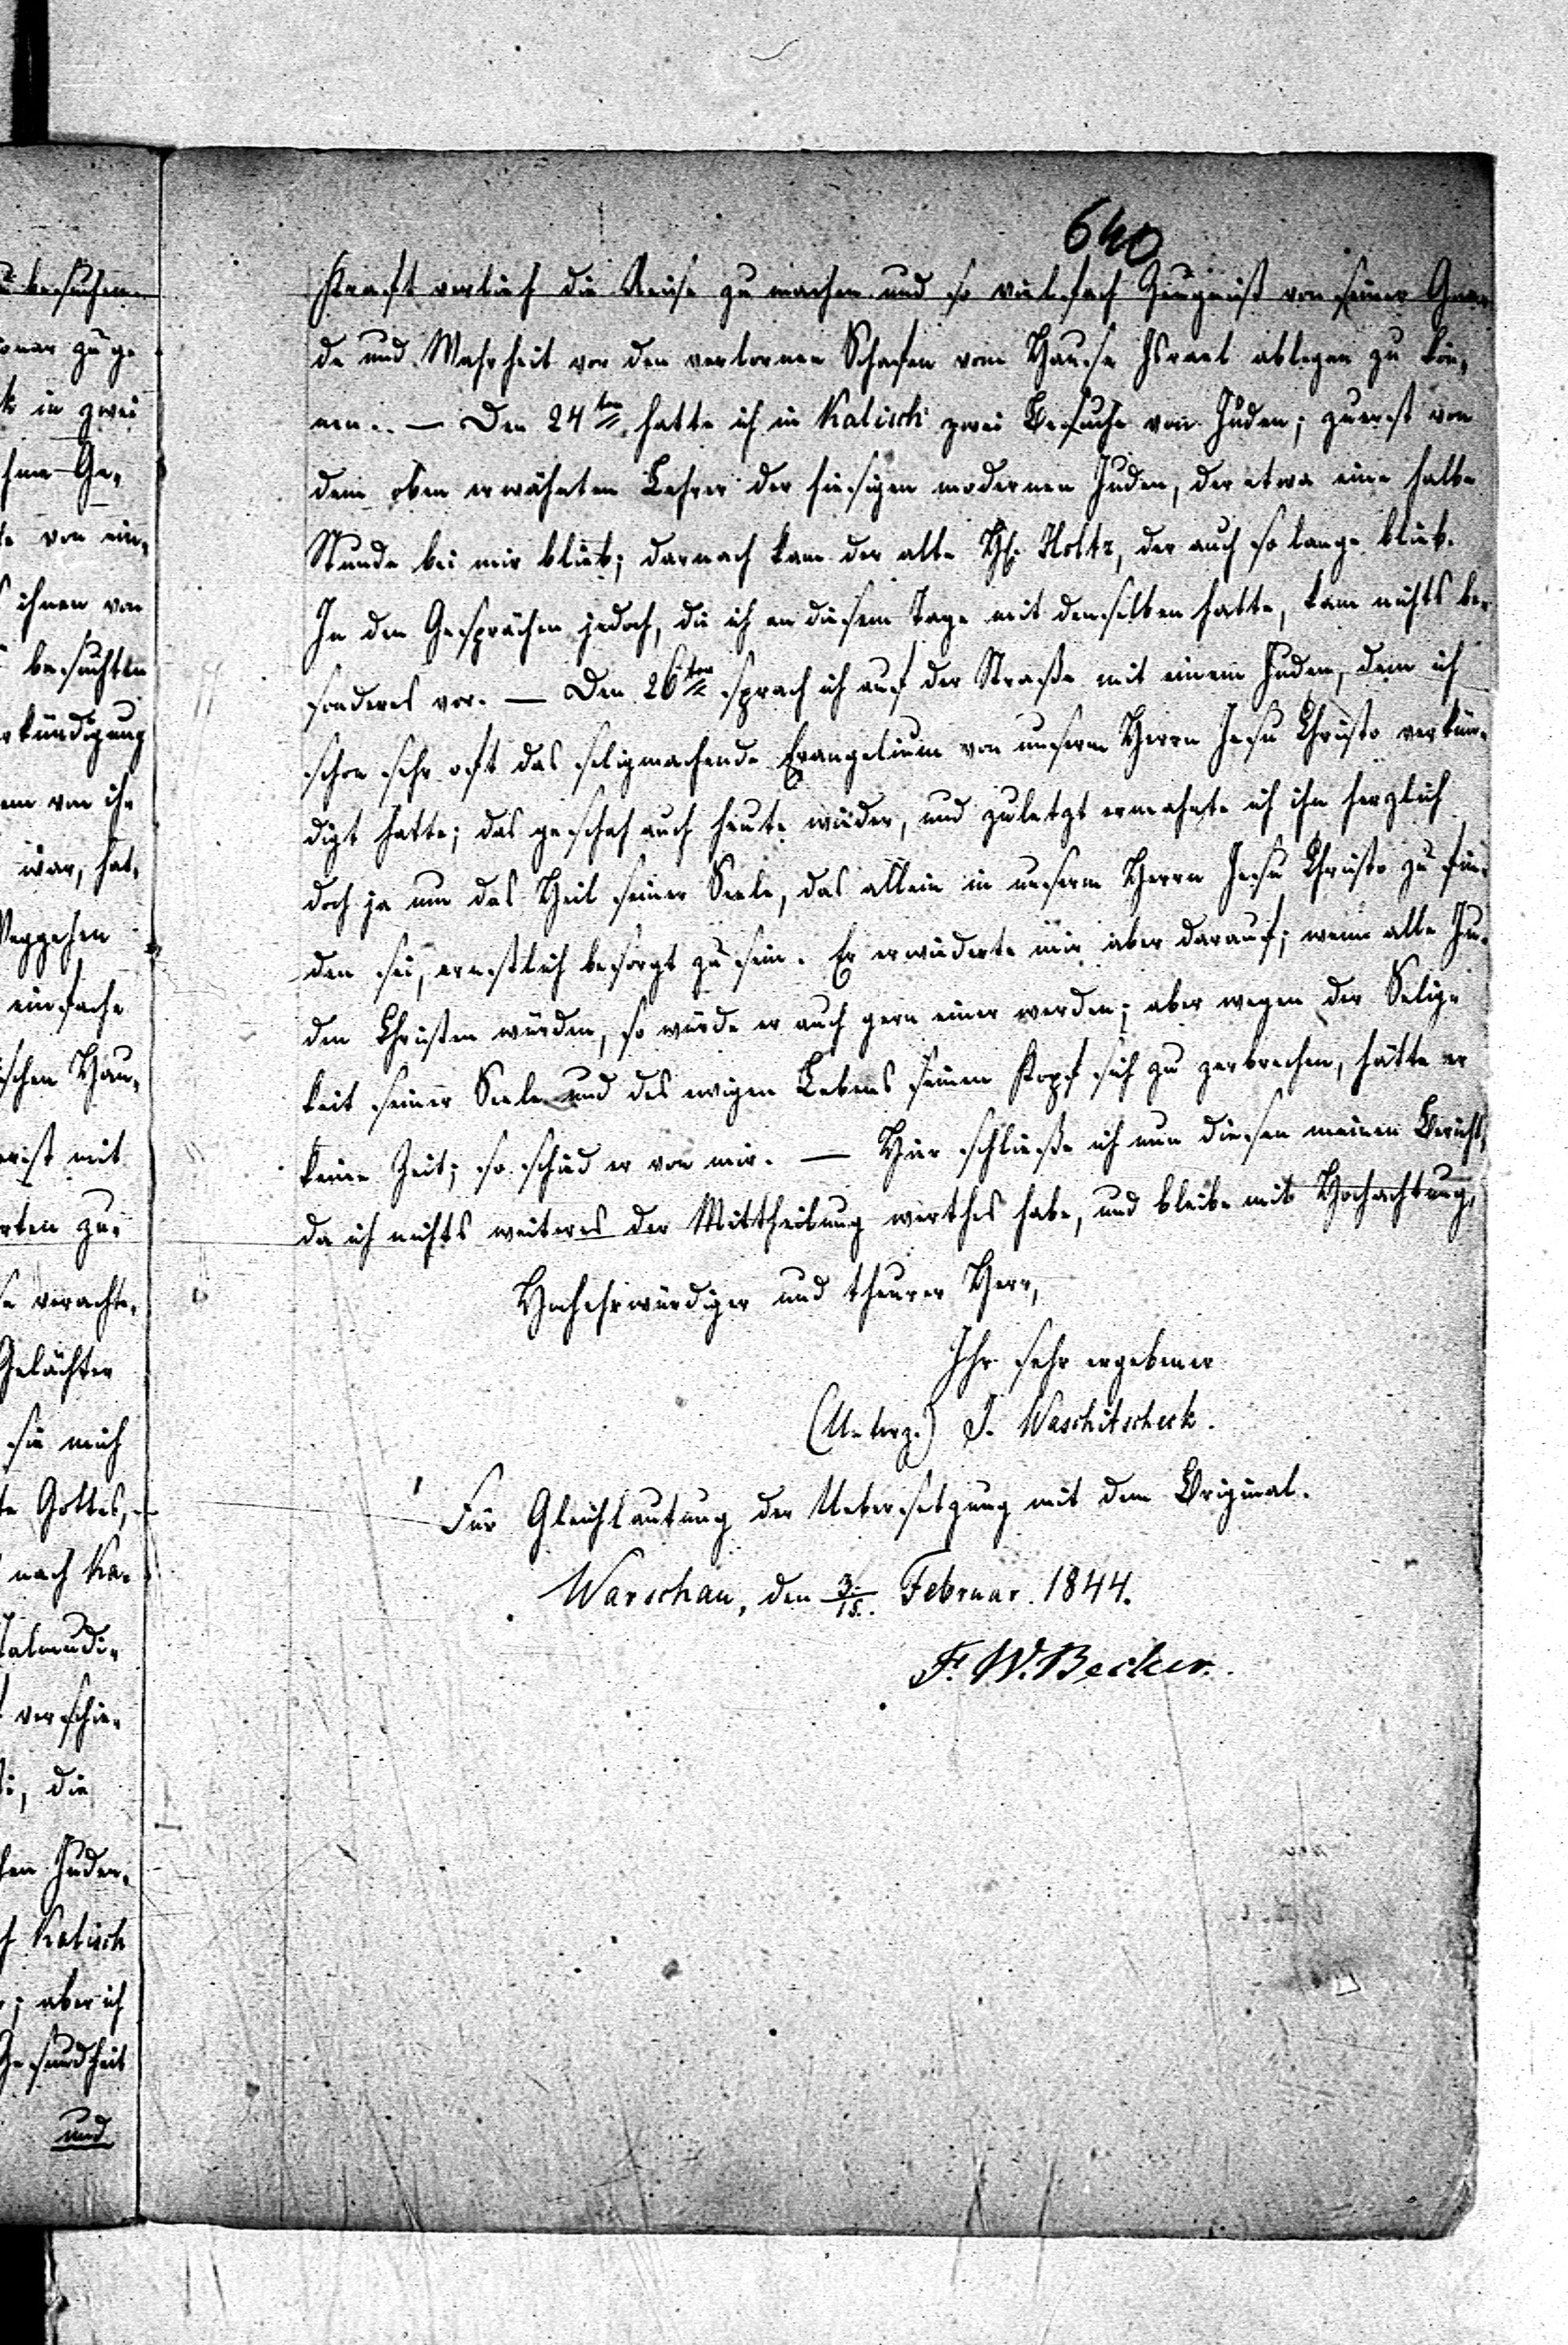 640
Kraft verlieh die Reise zu machen und so vielfach Zeugniß von seiner Gna-
de und Wahrheit vor den verlornen Schafen vom Hause Israel ablegen zu kön-
nen. — Den 24ten hatte ich in Kalisch zwei Besuche von Juden; zuerst von
dem oben erwähnten Lehrer der hiesigen modernen Juden, der etwa eine halbe
Stunde bei mir blieb; darnach kam der alte H. Holtz, der auch so lange blieb.
In den Gesprächen jedoch, die ich an diesem Tage mit denselben hatte, kam nichts be-
sonderes vor. — Den 26ten sprach ich auf der Straße mit einem Juden, dem ich
schon sehr oft das seligmachende Evangelium von unserm Herrn Jesu Christo verkün-
digt hatte; das geschah auch heute wieder, und zuletzt ermahnte ich ihn herzlich
doch ja um das Heil seiner Seele, das allein in unserm Herrn Jesu Christo zu fin-
den sei, ernstlich besorgt zu sein. Er erwiederte mir aber darauf; wenn alle Ju-
den Christen würden, so würde er auch gern einer werden; aber wegen der Selig-
keit seiner Seele und des ewigen Lebens seinen Kopf sich zu zerbrechen, hätte er
keine Zeit; so schied er von mir. — Hier schließe ich nun diesen meinen Bericht,
da ich nichts weiteres der Mittheilung werthes habe, und bleibe mit Hochachtung,
Hochehrwürdiger und theurer Herr,
Ihr sehr ergebener
(Unterz.) J. Waschitscheck.
Für Gleichlautung der Uebersetzung mit dem Original.
Warschau, den 3./15. Februar. 1844.
F. W. Becker.
besuchen
zu ge
in zwei
Ge-
von ein-
ihnen von
besuchten
kündigung
von ih-
war, hat-
Weggehen
einfache
schen Hau-
ist mit
rten zu-
verachte-
Gelächter
sie mich
te Gottes,
nach Ka-
Talmudi-
verschie-
, die
hen Juden-
Kalisch
; aber ich
Gesundheit
und